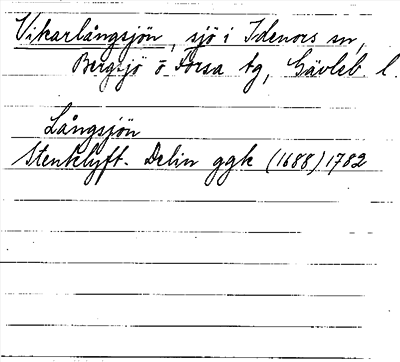 Vikarlångsjön, sjö i Idenors sn,
Bergsjö o Forsa tg, Gävleb. l.
Långsjön
Stenklyft. Delin ggk (1688) 1782